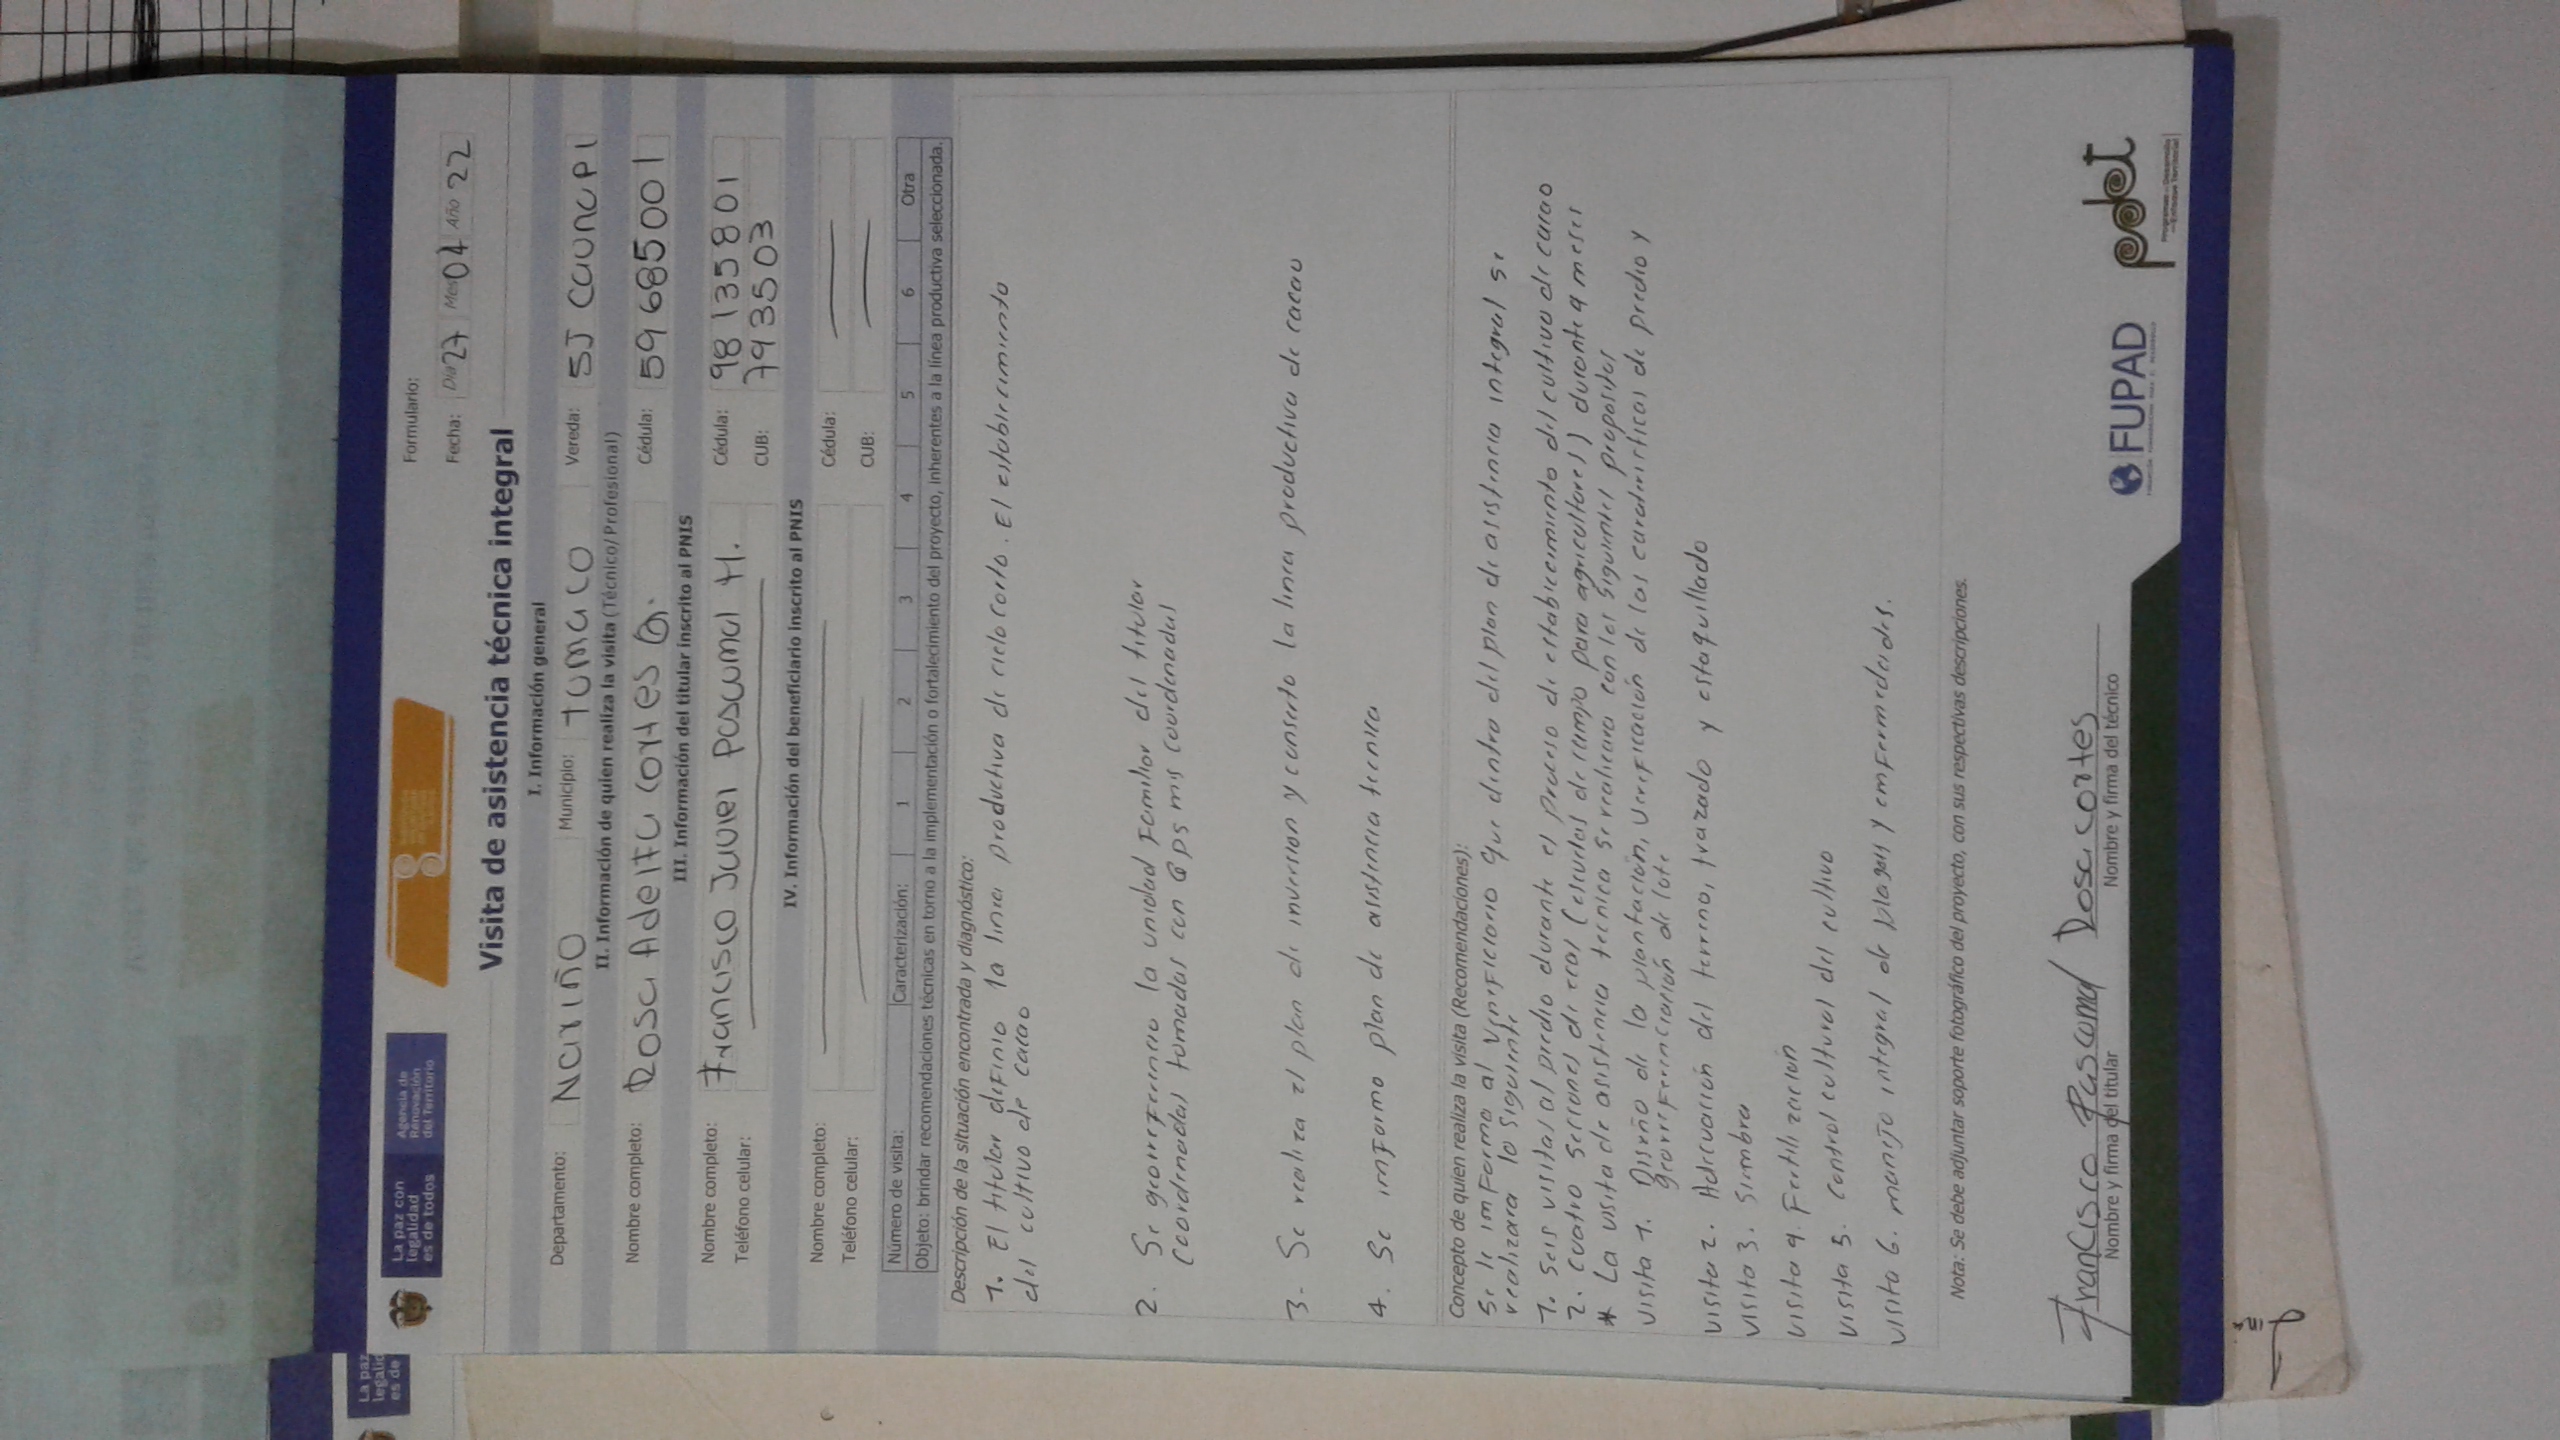 La paz con
legalidad
es de todos
Agencia de
Renovación
del Territorio
Formulario:
Fecha: Día 27 Mes 04 Año 22
Visita de asistencia técnica integral
I. Información general
Departamento: Nariño Municipio: Tumaco Vereda: SJ Caunapi
II. Información de quien realiza la visita (Técnico/Profesional)
Nombre completo: Rosa Adelfa Cortes Q. Cédula: 59685001
III. Información del titular inscrito al PNIS
Nombre completo: Francisco Javier Pascumal H. Cédula: 98135801
Teléfono celular: CUB: 7935503
IV. Información del beneficiario inscrito al PNIS
Nombre completo: Cédula:
Teléfono celular: CUB:
Número de visita: Caracterización: 1 2 3 4 5 6 Otra
Objeto: brindar recomendaciones técnicas en torno a la implementación o fortalecimiento del proyecto, inherentes a la línea productiva seleccionada.
Descripción de la situación encontrada y diagnóstico:
1. El titular definio la linea productiva de ciclo corto. El establecimiento
del cultivo de cacao
2. Se georreferencio la unidad familiar del titular
Coordenadas tomadas con Gps mis coordenadas
3- Se realiza el plan de inversion y concerto la linea productiva de cacao
4. Se informo plan de asistencia tecnica
Concepto de quien realiza la visita (Recomendaciones):
Se le informa al Veneficiario que dentro del plan de asistencia integral se
realizara lo siguiente
1. Seis visitas al predio durante el proceso de establecimiento del cultivo de cacao
2. cuatro secciones de ecas (escuelas de campo para agricultores) durante 9 meses
* La visita de asistencia tecnica se realizara con los siguientes propositos
visita 1. Diseño de la plantación, verificación de las caracteristicas de predio y
georreferenciación de lote
visita 2. Adecuación del terreno, trazado y estaquillado
visita 3. Siembra
visita 4. Fertilización
visita 5. control cultural del cultivo
visita 6. manejo integral de plagas y enfermedades.
Nota: Se debe adjuntar soporte fotográfico del proyecto, con sus respectivas descripciones.
Francisco Pascumal Rosa Cortes
Nombre y firma del titular Nombre y firma del técnico
FUPAD
pdet
Programas de Desarrollo
con Enfoque Territorial
La paz
legalid
es de